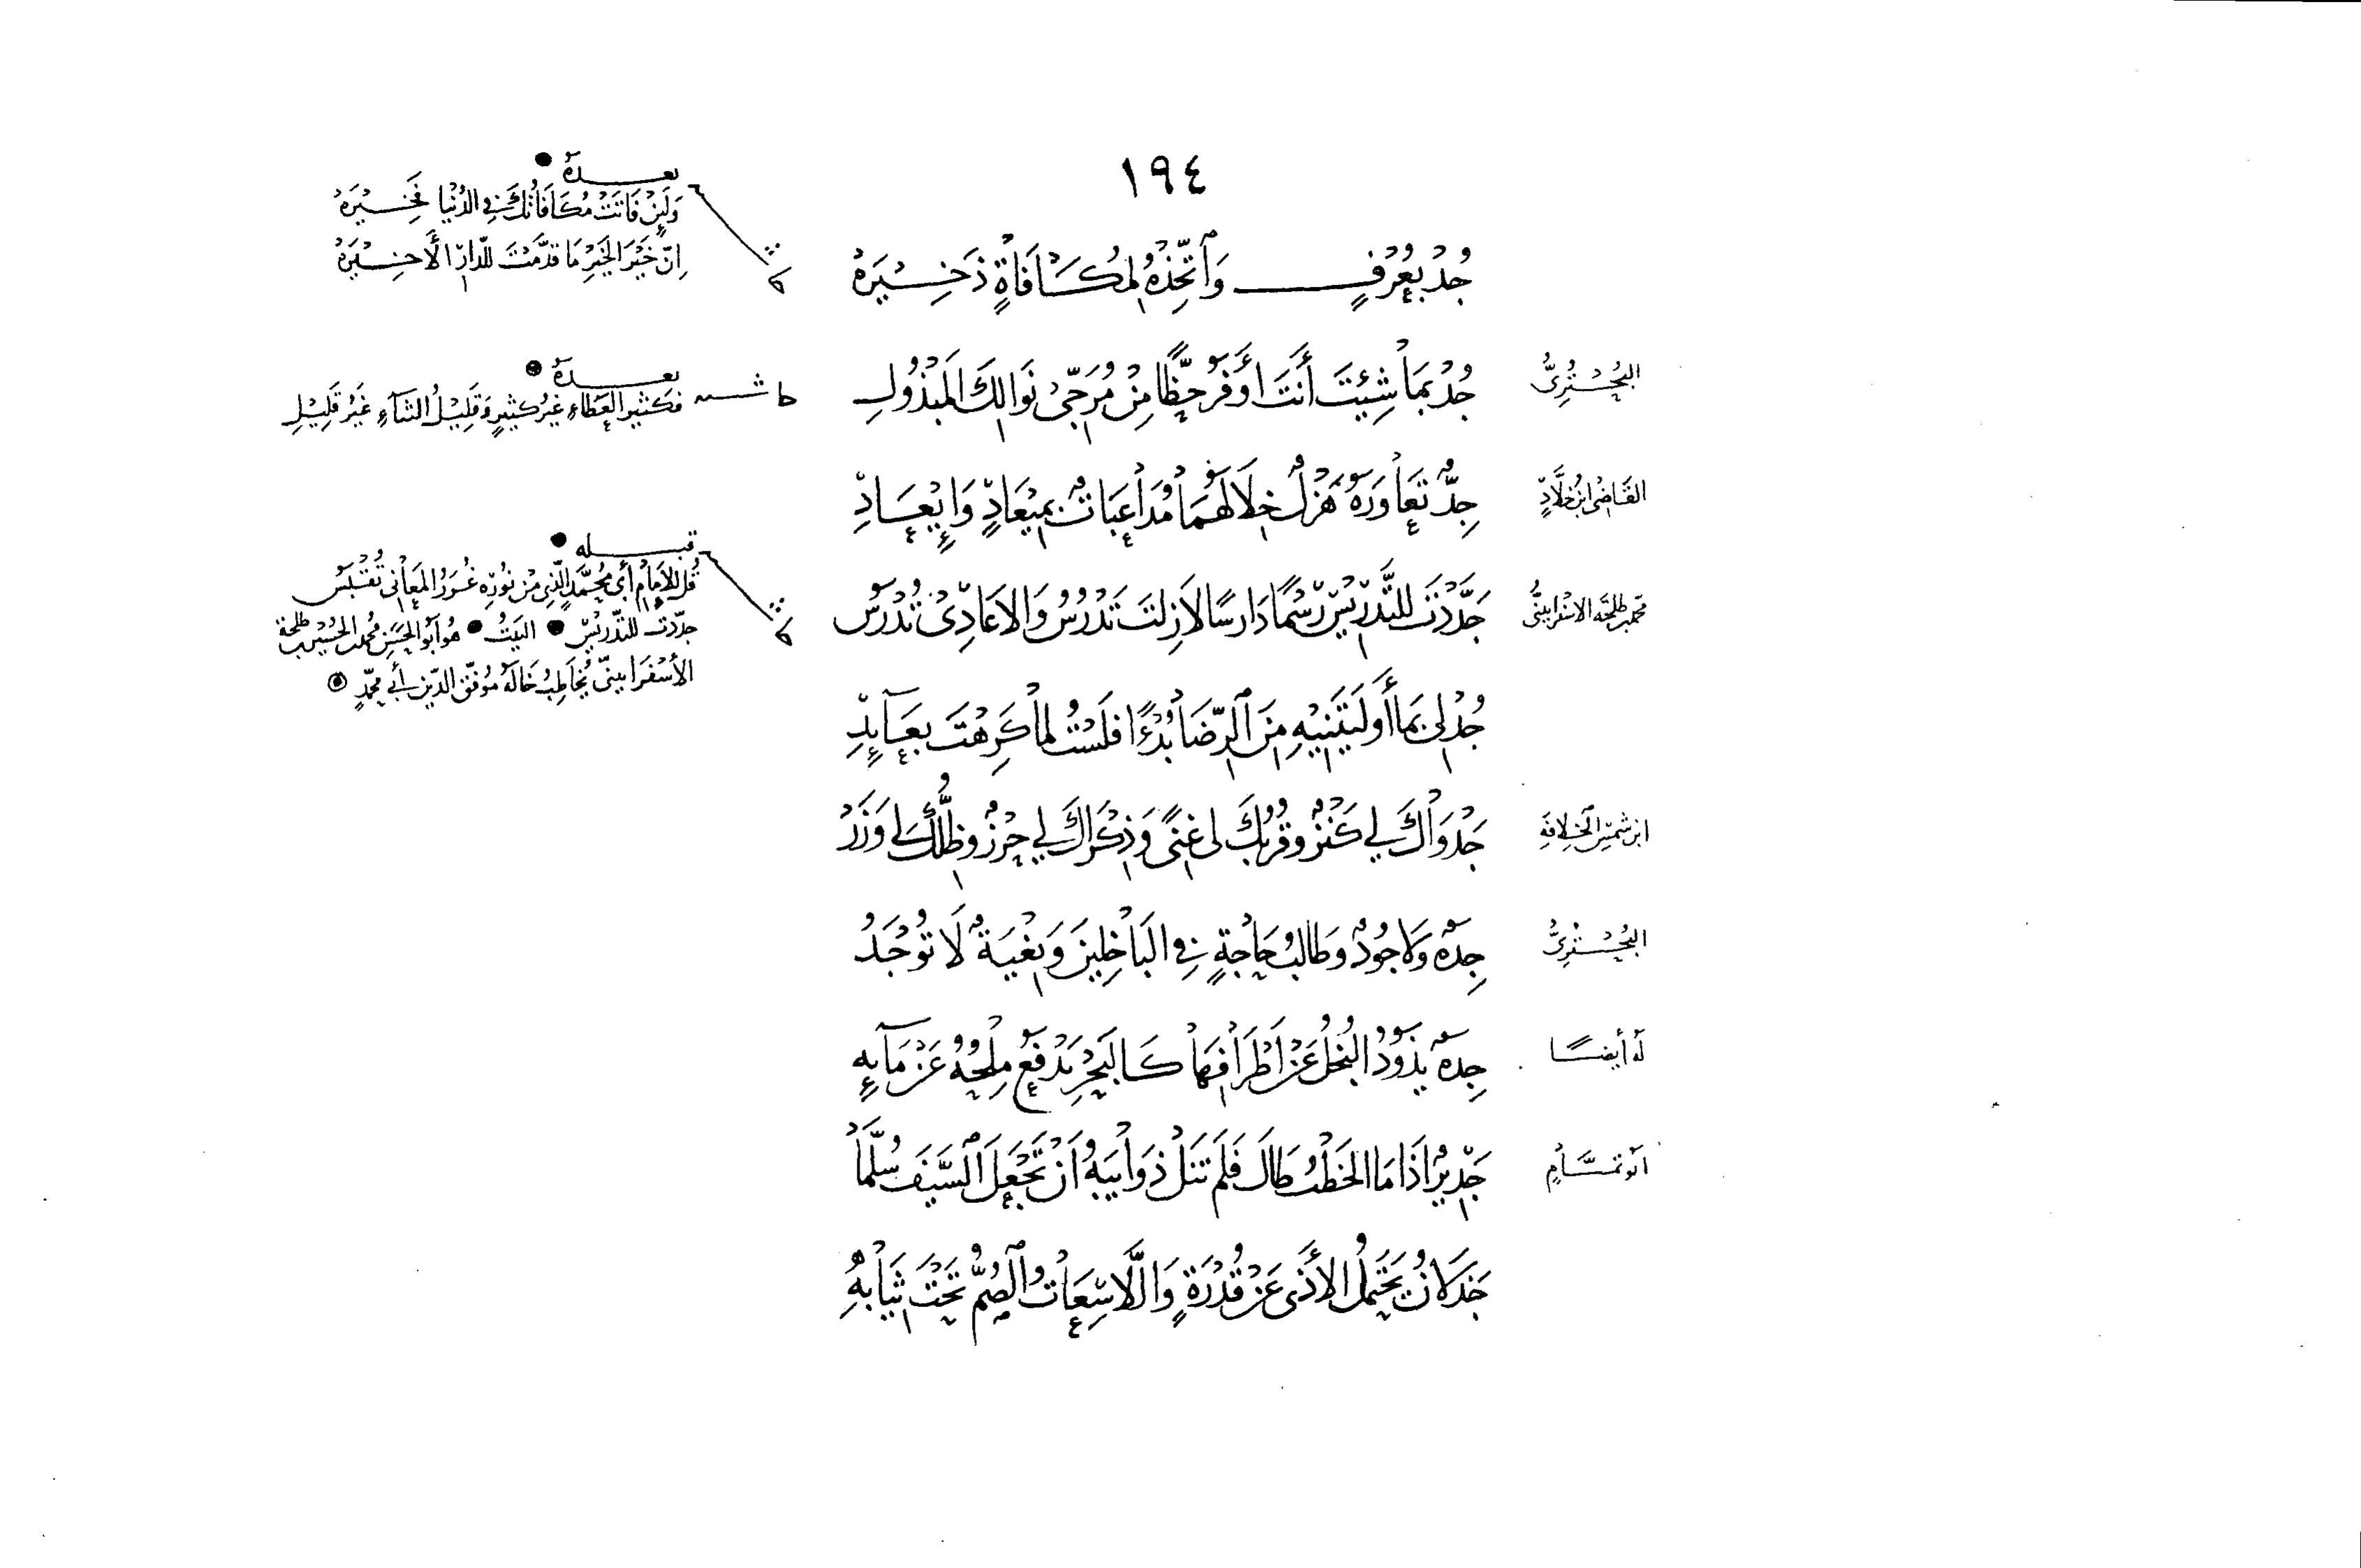 ١٩٤
جُدْ بِعُرْفٍ وَاتَّخِذْهُ لِمُكَافَاةٍ ذَخِيْرَهْ
بعده
وَلَئِنْ فَاتَتْ مُكَافَاتُكَ فِي الدُّنْيَا فَخِيْرَهْ
اِنَّ خَيْرَ الخَيْرِ مَا قدَّمْتَ لِلدَّارِ الأَخِيْرَهْ
البُحْتُرِىُّ
جُدْ بِمَا شِئْتَ أَنْتَ أَوْفَرُ حَظًّا مِنْ مُرَجِّىْ نَوَالِكَ المَبْذُولِ
حاشيه
بعده
فَكَثِيرُ العَطَاءِ غَيْرُ كَثِيرٍ وَقَلِيْلُ الثَنَآءِ غَيْرُ قَلِيْلِ
القَاضِى ابْنُ خَلَّادٍ
جِدٌّ تَعَاوَرَهُ هَزْلٌ خِلَالَهُمَا مُدَاعَبَاتٌ بِمِيْعَادٍ وَاِيْعَادِ
محمد بن طلحَة الاسْفَراييْنىُّ
جَدَّدْتَ لِلتَّدْرِيْسِ رَسْمًا دَارِسًا لَازِلتَ تَدْرُسُ وَالاَعَادِىْ تُدْرَسُ
قبله
قُلْ لِلْاِمَامِ أَبِي مُحَمَّدٍ الَّذِى مِنْ نُوْرِهِ غُرَرُ المَعَانِى تُقْتَبَسُ
جدّدتَ للتّدريْسِ البَيْتُ هُوَ أبُو الحَسَنِ محمد بن الحُسَيْن بن طلحَة
الأسْفَرَايينىّ يُخَاطِبُ خَالَهُ مُوَفّق الدّين أبي محمّدٍ
جُدْ لِى بِمَا أَوْلَيْتَنِيْهِ مِنَ الرِّضَا بُدْءًا فَلَسْتُ لِمَا كَرِهْتَ بِعَآئِدِ
ابن شمسِ الخِلافَةِ
جَدْوَاكَ لِي كَنْزٌ وقُرْبُكَ لِى غِنًى وَذِكْرَاكَ لِي حِرْزٌ وظِلُّكَ لِي وَزَرْ
البُحْتُرِىُّ
جِدَةٌ وَلَا جُودٌ وَطَالِبُ حَاجَةٍ فِي البَاخِلِيْنَ وَبِغْيَةٌ لَا تُوْجَدُ
لَهُ أيضًا
جِدَةٌ يَذُوْدُ البُخْلُ عَنْ اَطْرَافِهَا كَالبَحْرِ يَدْفَعُ مِلْحُهُ عَنْ مَآئِهِ
اَبُو تمَّامٍ
جَدِيْرٌ اِذَا مَا الخَطْبُ طَالَ فَلَمْ تُنَلْ ذَوَائِبُهُ اَنْ تَجْعَلَ السَّيْفَ سُلَّمَا
جَذْلَانُ يَحْتَمِلُ الاَذَى عَنْ قُدْرَةٍ وَاللَّاسِعَاتُ الصُمُّ تَحْتَ ثِيَابِهِ